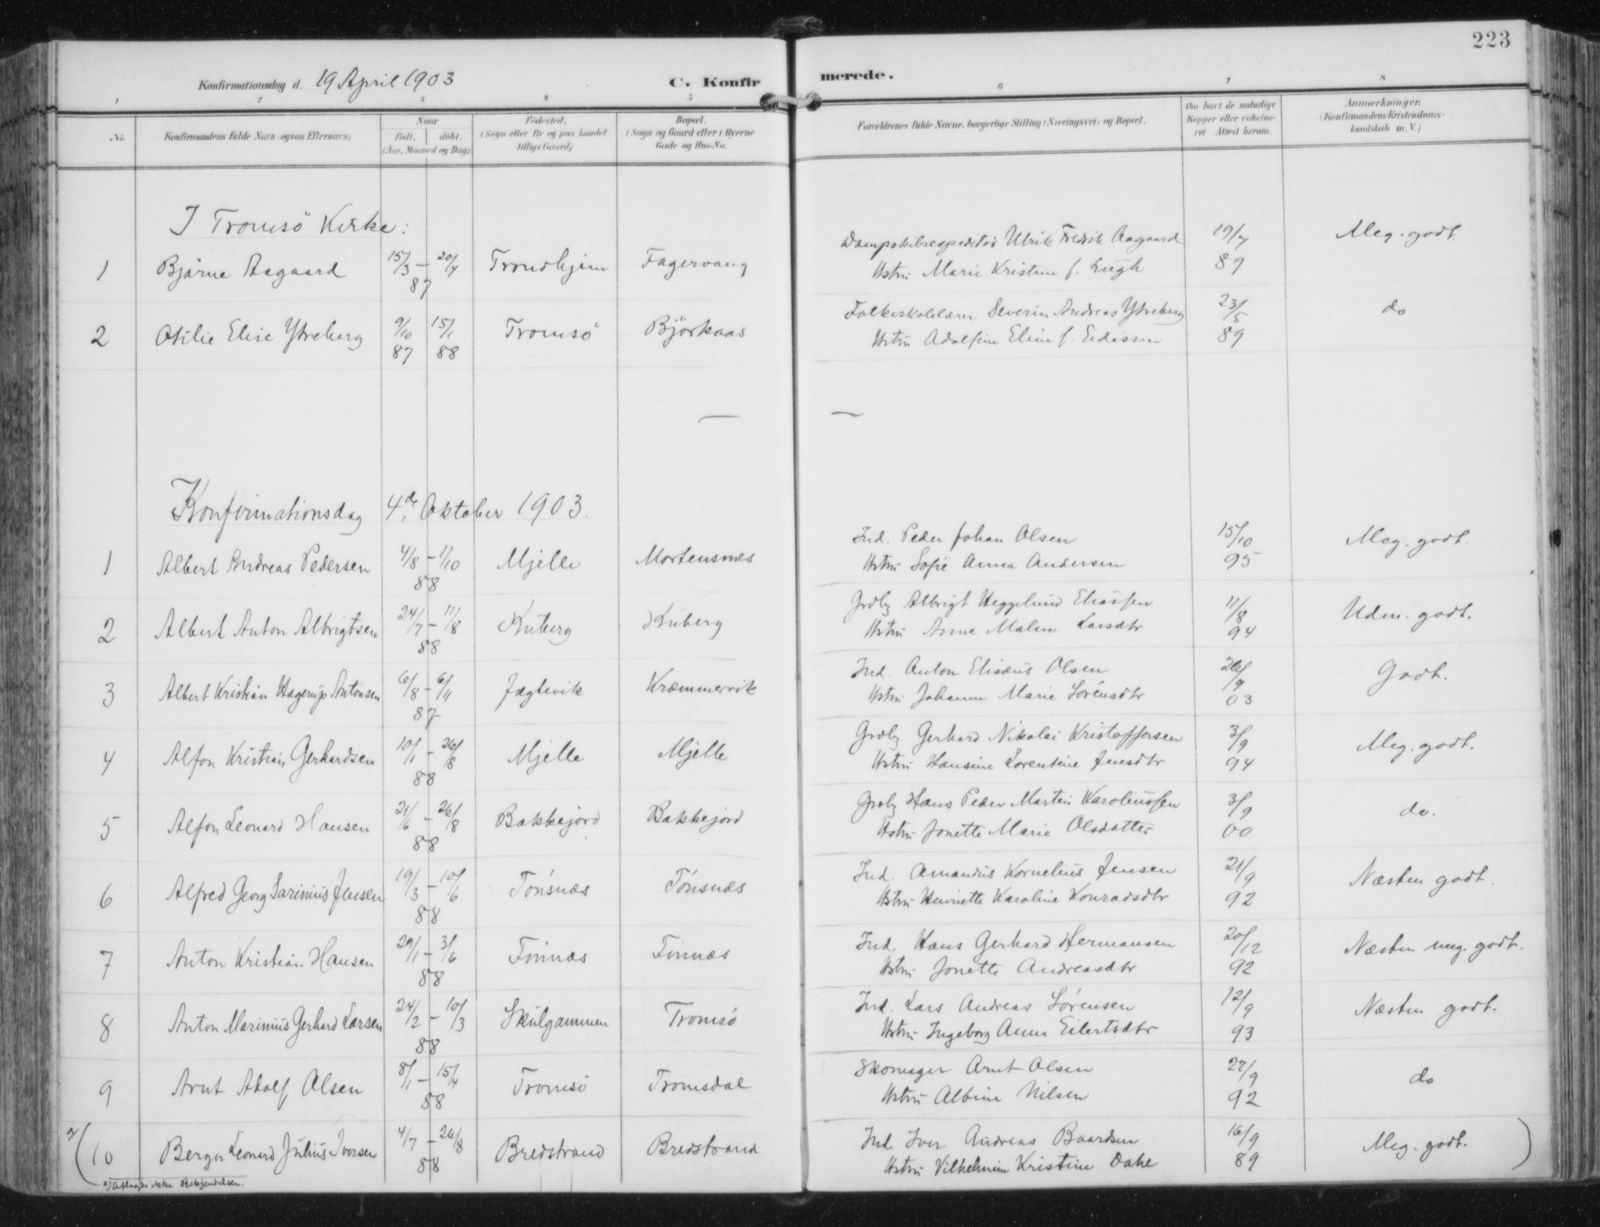 223
Konfirmationsdag d. 19 April 1903
C. Konfirmerede.
1 2 3 4 5 6 7 8
No.
Konfirmandens fulde Navn (ogsaa Efternavn)
Naar
født. døbt.
(Aar, Maaned og Dag)
Fødested.
(Sogn eller By og paa Landet tillige Gaard)
Bopæl.
(Sogn og Gaard eller i Byerne Gade og Hus-No.
Forældrenes fulde Navne, borgerlige Stilling (Næringsvei) og Bopæl.
Om havt de naturlige Kopper eller vaccineret. Attest herom.
Anmærkninger.
(Konfirmandens Kristendomskundskab m. V.)
I Tromsö Kirke:
1 Bjarne Aagaard 15/3 – 20/4 87 Trondhjem Fagervang
Ulrik Fredrik Aagaard 19/7 89 Meg. godt.
Hstru Marie Kristine f. Engh
2 Otilie Elise Ytreberg 9/10 87 15/1 88 Tromsö Björkaas
Severin Andreas Ytreberg 23/5 89 do
Hstru Adolfine Eline f. Eidissen
Konfirmationsdag 4de Oktober 1903.
1 Albert Andreas Pedersen 4/8 – 1/10 88 Mjelle Mortensnes
Ind. Peder Johan Olsen 15/10 95 Meg. godt.
Hstru Sofie Anna Andersen
2 Albert Anton Albrigtsen 24/7 – 11/8 88 Knberg
Grdbr Albrigt Heggelund Eliassen 11/8 94 Udm. godt.
Hstru Anne Malene Larsdtr
3 Albert Kristian Hagerup Antonsen 6/8 – 6/11 87 Jægtevik Kræmmervik
Ind. Anton Eliseus Olsen 26/9 03 Godt.
Hstru Johanne Marie Sörensdtr
4 Alfon Kristian Gerhardsen 10/1 – 26/8 88 Mjelle Mjelle
Grdbr Gerhard Nikolai Kristoffersen 3/9 94 Meg. godt.
Hstru Hansine Lorentine Jensdtr
5 Alfon Leonard Hansen 21/6 – 26/8 88 Bakkejord Bakkejord
Grdbr Hans Peder Martin Karoliussen 3/9 00 do.
Hstru Jonette Marie Olsdatter
6 Alfred Georg Sarinius Jensen 19/3 – 10/6 88 Tönsnæs Tönsnæs
Ind. Amandus Kornelius Jensen 21/9 92 Næsten godt.
Hstru Henriette Karoline Konradsdtr
7 Anton Kristian Hansen 29/1 – 3/6 88 Finnæs Finnæs
Ind. Hans Gerhard Hermansen 20/12 92 Næsten meg. godt.
Hstru Jonette Andreasdtr
8 Anton Marinius Gerhard Larsen 24/2 – 10/3 88 Skulgammen Tromsö
Ind. Lars Andreas Sörensen 12/9 93 Næsten godt.
Hstru Ingeborg Anna Eilertsdtr
9 Arnt Adolf Olsen 8/1 – 15/4 88 Tromsö Tromsdal
Skomager Arnt Olsen 27/9 92 do
Hstru Albine Nilsen
*) (10 Berger Leonard Julius Iversen 4/7 – 26/8 88 Bredstrand Bredstrand
Ind. Iver Andreas Baardsen 16/9 89 Meg. godt. )
Hstru Vilhelmine Kristine Dahl
*) Aflagde ikke Bekjendelsen.